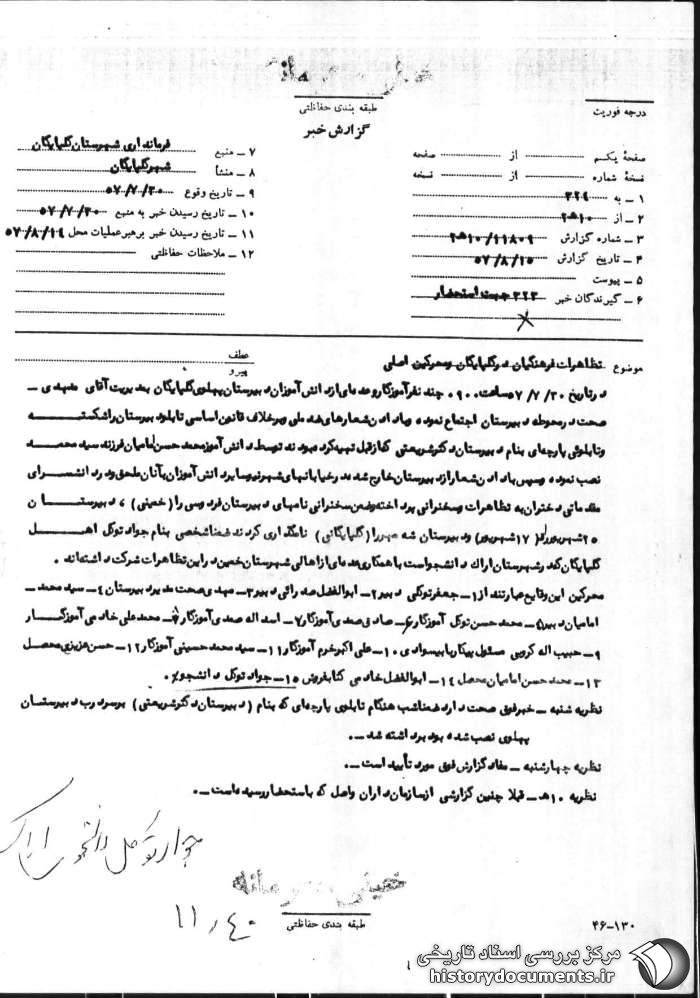 خیلی محرمانه
طبقه بندی حفاظتی
گزارش خبر
درجه فوریت
صفحهٔ یکم از صفحه
نسخهٔ شماره از نسخه
۱ – به ۳۲۴
۲ – از ۱۰ﻫ۲
۳ – شماره گزارش ۱۱۸۰۹/۱۰ﻫ۲
۴ – تاریخ گزارش ۵۷/۸/۱۵
۵ – پیوست
۶ – گیرندگان خبر ۳۲۳ جهت استحضار
۷ – منبع فرمانداری شهرستان گلپایگان
۸ – منشأ شهر گلپایگان
۹ – تاریخ وقوع ۵۷/۷/۳۰
۱۰ – تاریخ رسیدن خبر به منبع ۵۷/۷/۳۰
۱۱ – تاریخ رسیدن خبر برهبر عملیات محل ۵۷/۸/۱۴
۱۲ – ملاحظات حفاظتی
موضوع تظاهرات فرهنگیان در گلپایگان و محرکین اصلی
عطف
پیرو
در تاریخ ۵۷/۷/۳۰ ساعت ۰۹۰۰ چند نفر آموزگار و عده‌ای از دانش آموزان دبیرستان پهلوی گلپایگان بمدیریت آقای مهدی –
صحت در محوطه دبیرستان اجتماع نموده و با دادن شعارهای ضد ملی و برخلاف قانون اساسی تابلو دبیرستان را شکسته
و تابلوئی پارچه‌ای بنام دبیرستان دکتر شریعتی که از قبل تهیه کرده بودند توسط دانش آموز محمد حسن امامیان فرزند سید محمد
نصب نموده و سپس با دادن شعار از دبیرستان خارج شده در خیابانهای شهر نیز سایر دانش آموزان بآنان ملحق و در دانشسرای
مقدماتی دختران به تظاهرات و سخنرانی پرداخته و ضمن سخنرانی نامهای دبیرستان فردوسی را (خمینی) ، دبیرستان
۲۵ شهریور را (۱۷ شهریور) و دبیرستان شه مهر را (گلپایگانی) نامگذاری کردند ضمناً شخصی بنام جواد توکل اهل
گلپایگان که در شهرستان اراک دانشجو است با همکاری عده‌ای از اهالی شهرستان خمین در این تظاهرات شرکت داشته‌اند .
محرکین این وقایع عبارتند از ۱– جعفر توکلی دبیر ۲– ابوالفضل صدراتی دبیر ۳– مهدی صحت مدیر دبیرستان ۴– سید محمد –
امامیان دبیر ۵– محمد حسن توکل آموزگار ۶– صادق صمدی آموزگار ۷– اسد اله صمدی آموزگار ۸– محمد علی خادمی آموزگار
۹– حبیب اله کرمی مسئول پیکار با بیسوادی ۱۰– علی اکبر خرم آموزگار ۱۱– سید محمد حسینی آموزگار ۱۲– حسن عزیزی محصل
۱۳– محمد حسن امامیان محصل ۱۴– ابوالفضل خادمی کتابفروش ۱۵– جواد توکل دانشجو .
نظریه شنبه – خبر فوق صحت دارد ضمناً شب هنگام تابلوی پارچه‌ای که بنام (دبیرستان دکتر شریعتی) بر سر درب دبیرستان
پهلوی نصب شده بود برداشته شد –.
نظریه چهارشنبه – مفاد گزارش فوق مورد تأیید است –.
نظریه ۱۰ﻫ – قبلا چنین گزارشی از سازمان داران واصل که باستحضار رسیده است –.
جواد توکل دانشجوی اراک
خیلی محرمانه
طبقه بندی حفاظتی
۱۱٫۴۰
۴۶-۱۳۰
مرکز بررسی اسناد تاریخی
historydocuments.ir